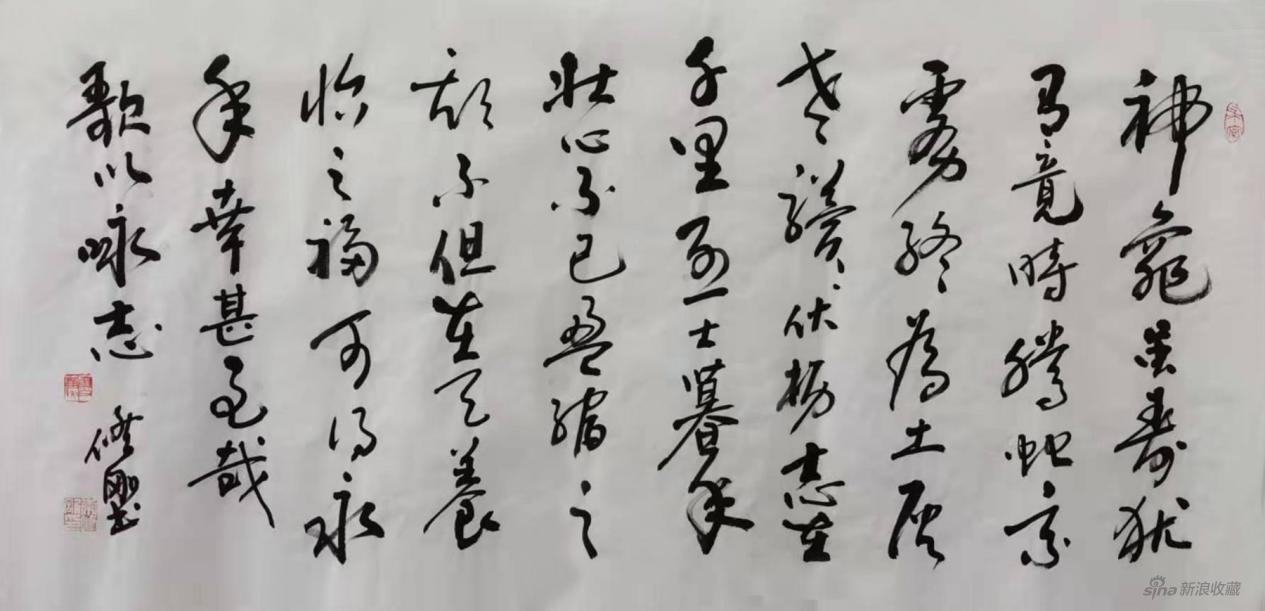 神龜虽寿犹
有竟時騰蛇乘
霧終為土灰
老驥伏枥志在
千里烈士暮年
壮心不已盈縮之
期不但在天養
怡之福可得永
年幸甚至哉
歌以咏志
sina 新浪收藏